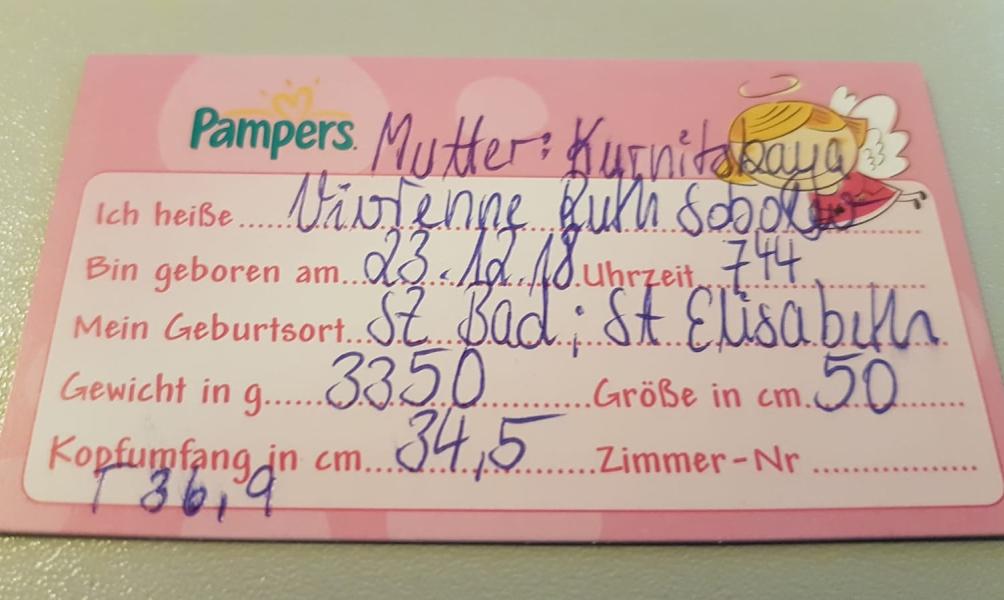 Pampers. Mutter: Kurnitskaya
Ich heiße Vivienne Ruth
Bin geboren am 23.12.18 Uhrzeit 744
Mein Geburtsort SZ Bad; St Elisabeth
Gewicht in g 3350 Größe in cm 50
Kopfumfang in cm 34,5 Zimmer-Nr
T 36,9